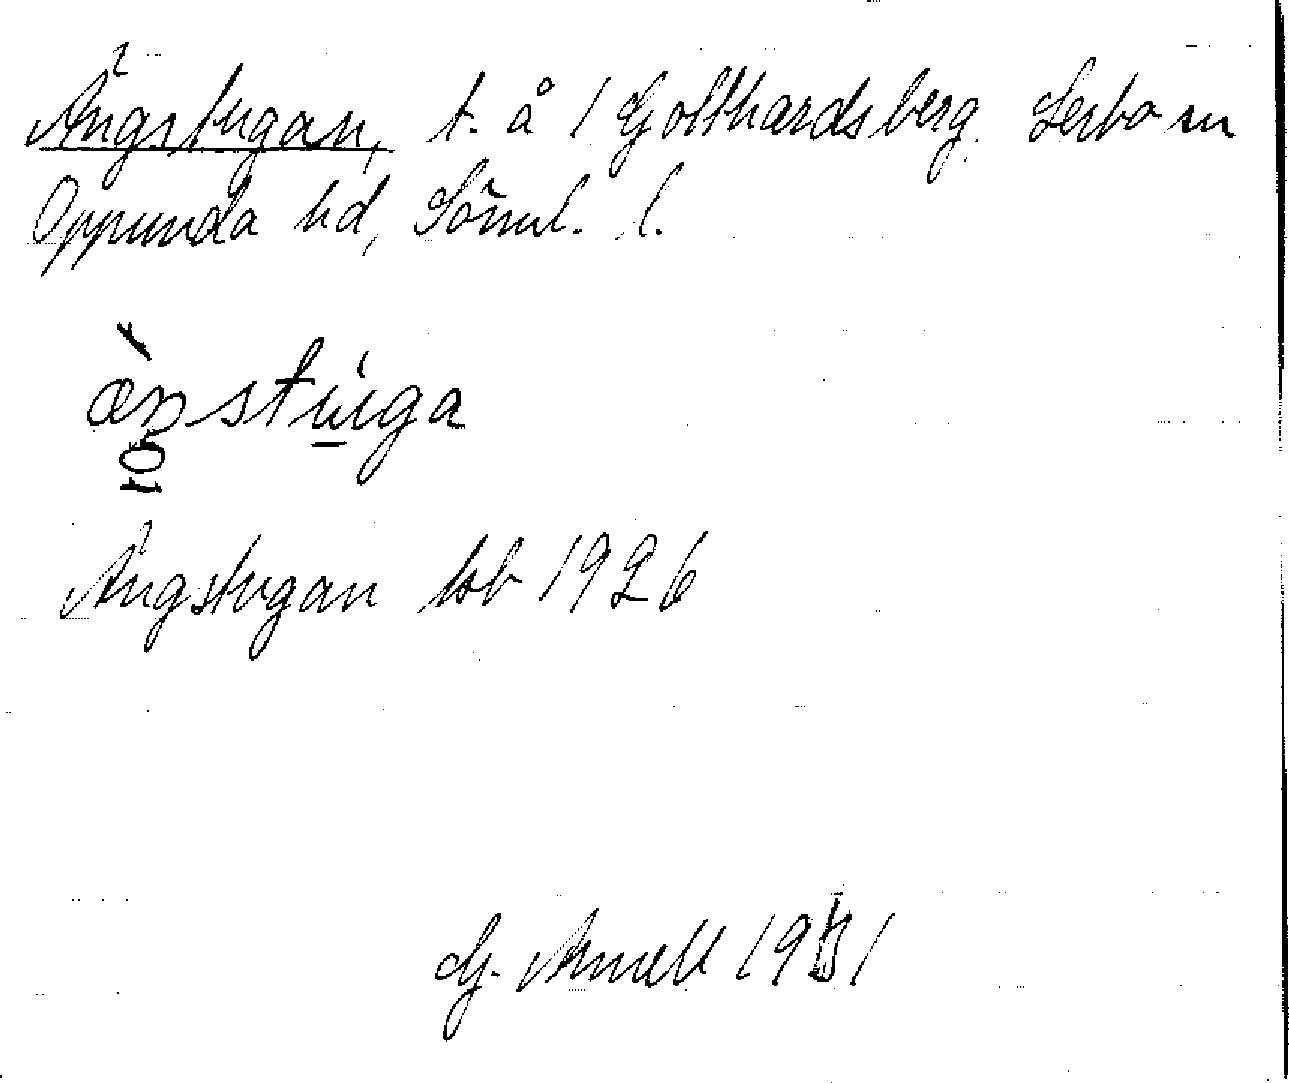 Ängstugan, t. å 1 Gotthardsberg. Lerbo sn
Oppunda hd, Söml. l.
æ̀ŋstú̲ga
Ängstugan ksb 1926
G. Arnell 1931